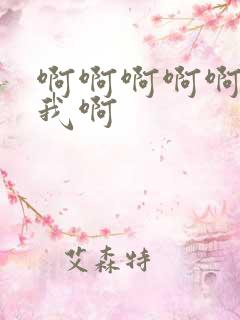 啊啊啊啊啊
我啊
艾森特